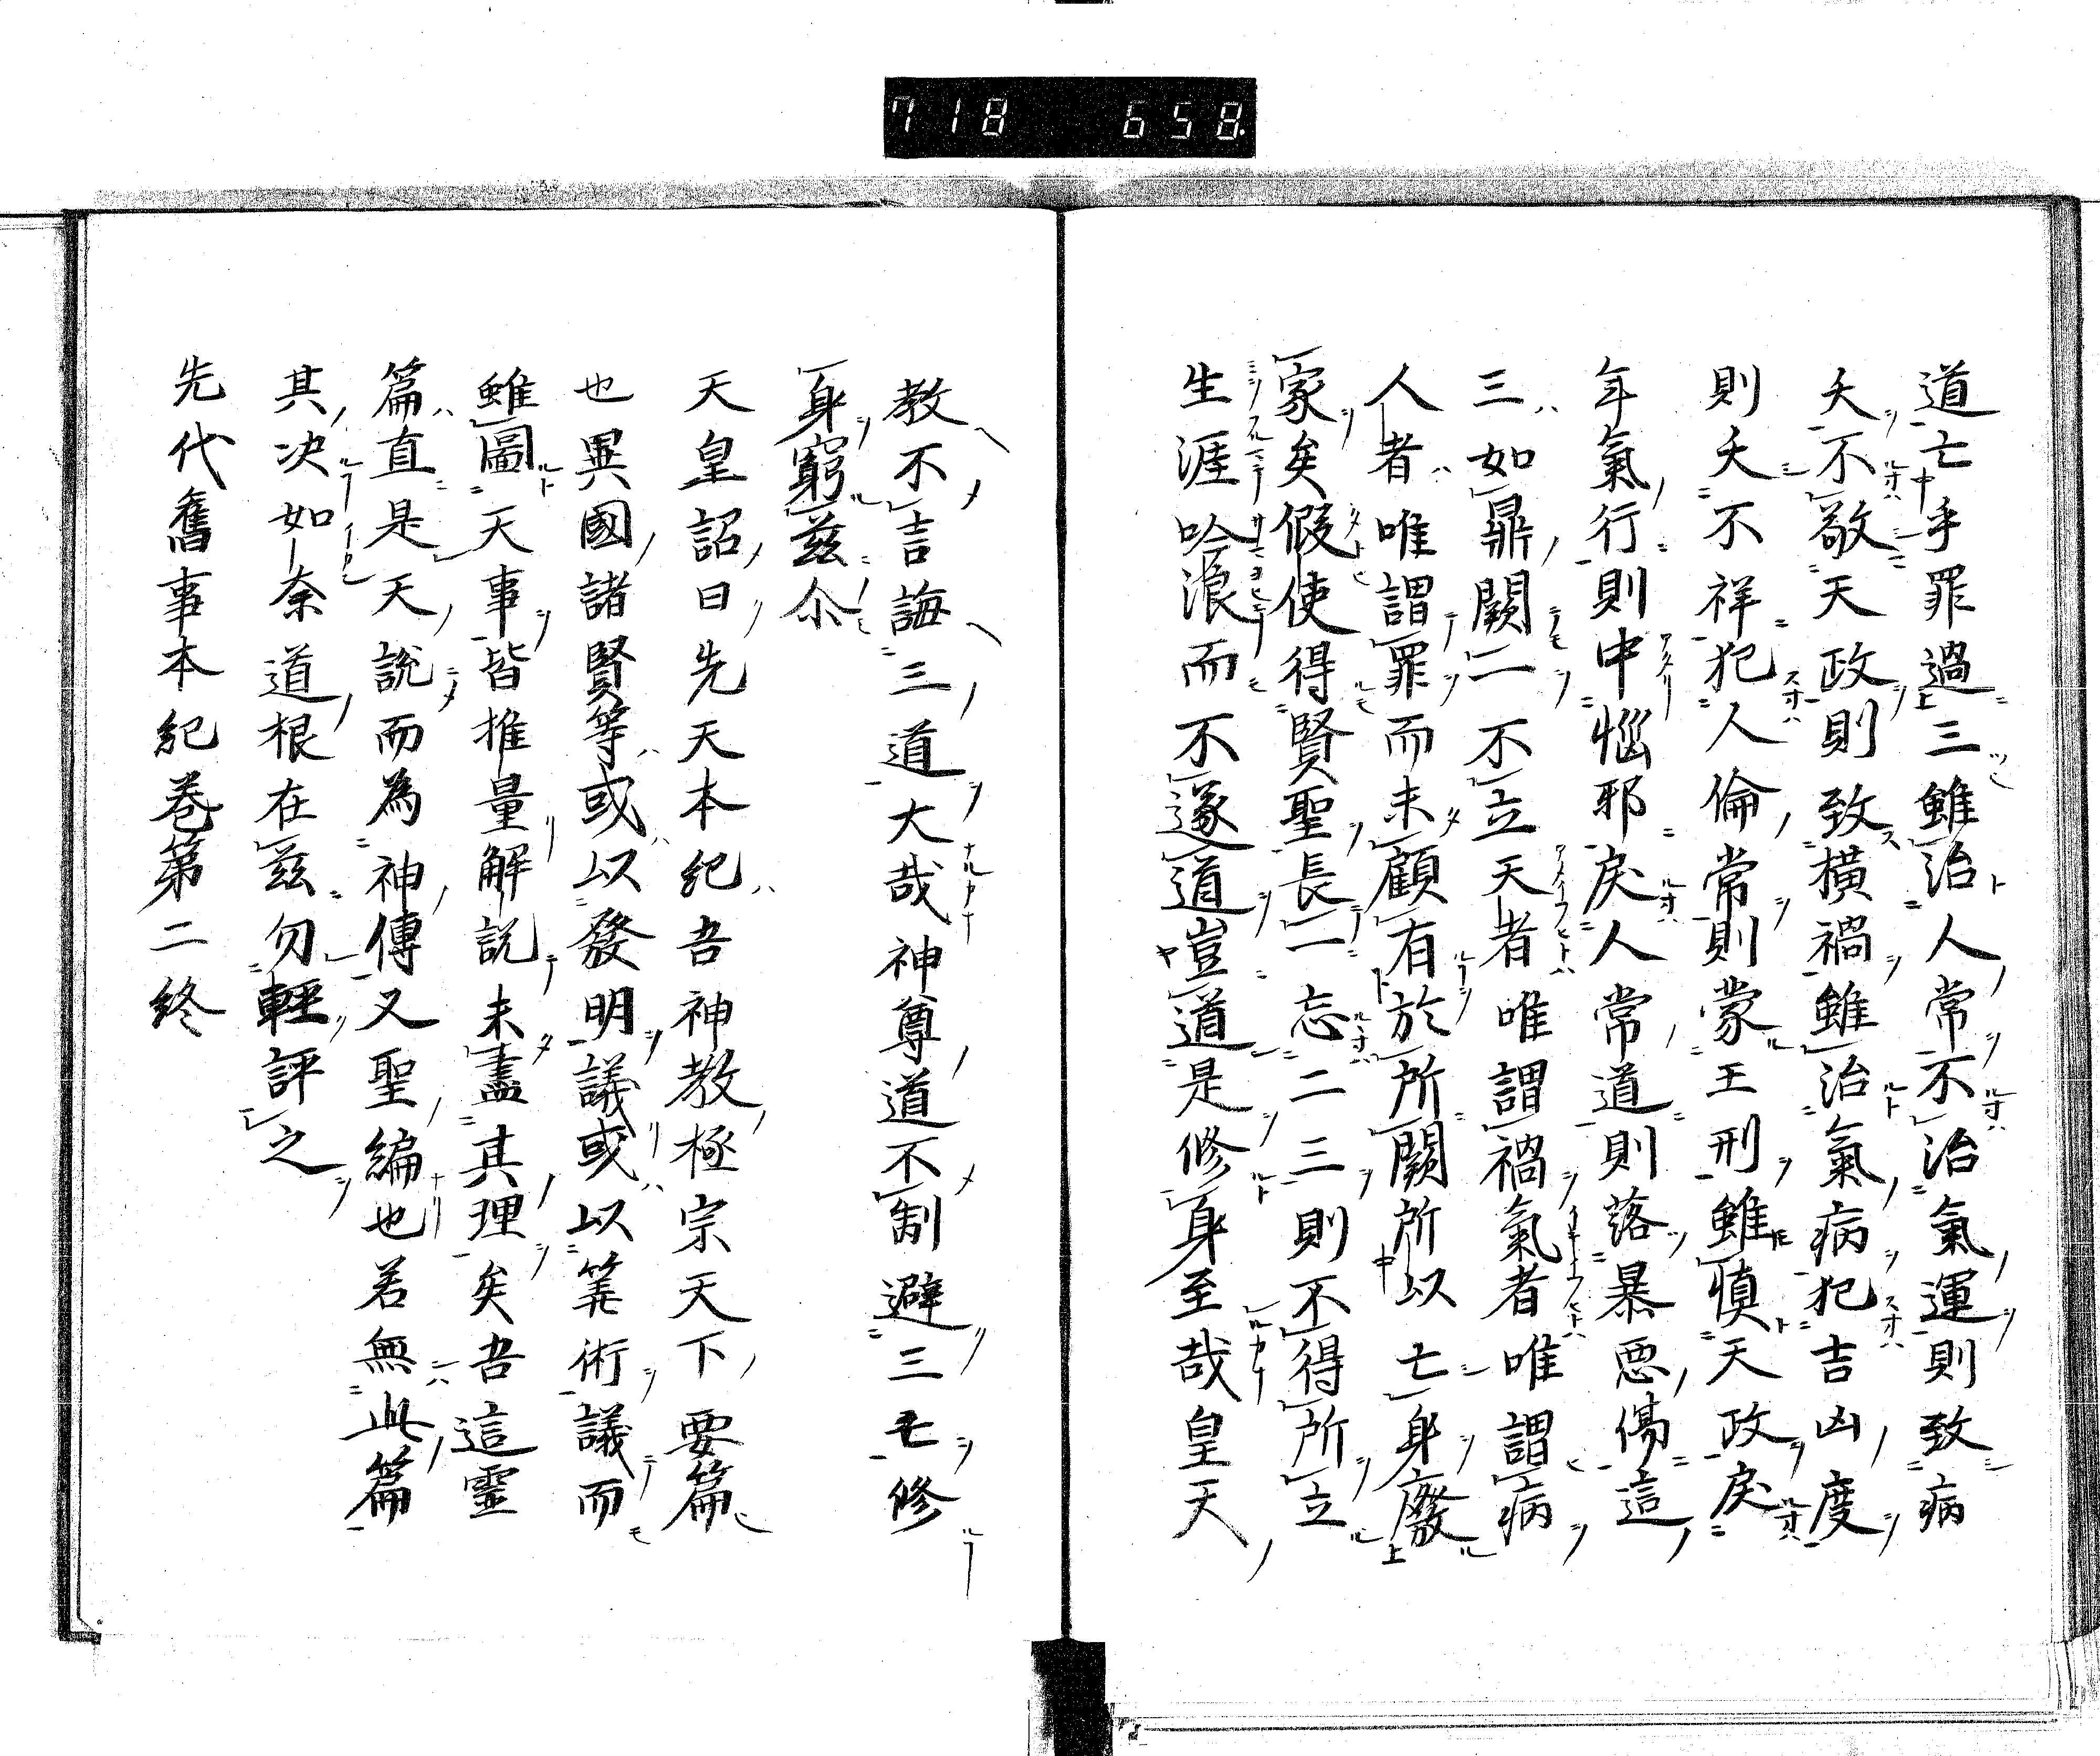 718 658
道亡乎罪過三雖治人常不治氣運則致病
夭不敬天政則致橫禍雖治氣病犯吉凶度
則夭不祥犯人倫常則蒙王刑雖慎天政戾
年氣行則中惱邪戾人常道則落暴悪傷這
三如鼎闕二不立天者唯謂禍氣者唯謂病
人者唯謂罪而未顧有於所闕所以亡身廢
家矣假使得賢聖長一忘二三則不得所立
生涯吟浪而不遂道豈道是修身至哉皇天
教不言誨三道大哉神尊道不制避三亡修
身窮茲尒
天皇詔曰先天本紀吾神教極宗天下要篇
也異國諸賢等或以發明議或以筭術議而
雖圖天事皆推量解說未盡其理矣吾這靈
篇直是天說而為神傳又聖編也若無此篇
其決如奈道根在茲勿輕評之
先代舊事本紀巻第二終